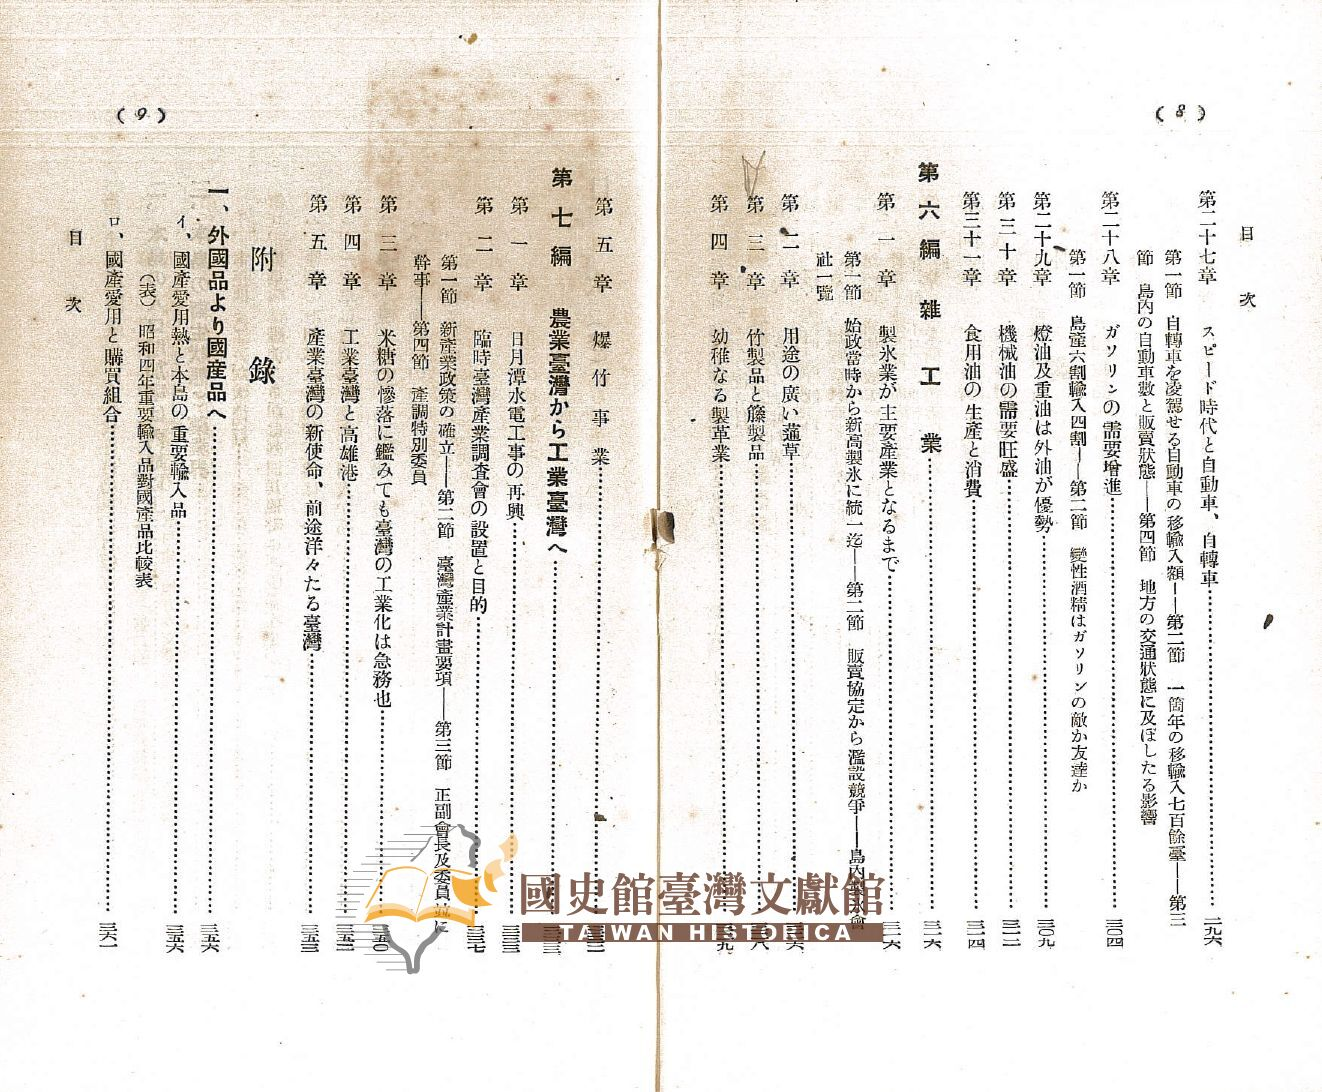 (8)
目次
第二十七章 スピード時代と自動車、自轉車……二九六
第一節 自轉車を凌駕せる自動車の移輸入額——第二節 一箇年の移輸入七百餘臺——第三
節 島內の自動車數と販賣狀態——第四節 地方の交通狀態に及ぼしたる影響
第二十八章 ガソリンの需要增進……三〇四
第一節 島產六割輸入四割——第二節 變性酒精はガソリンの敵か友達か
第二十九章 燈油及重油は外油が優勢……三〇九
第三十章 機械油の需要旺盛……三一二
第三十一章 食用油の生產と消費……三一四
第六編 雜工業……三一六
第一章 製氷業が主要產業となるまで……三一六
第一節 始政當時から新高製氷に統一迄——第二節 販賣協定から濫設競爭——島內製氷會
社一覽
第二章 用途の廣い蓪草
第三章 竹製品と籐製品
第四章 幼稚なる製革業
(9)
第五章 爆竹事業
第七編 農業臺灣から工業臺灣へ
第一章 日月潭水電工事の再興
第二章 臨時臺灣產業調査會の設置と目的
第一節 新產業政策の確立——第二節 臺灣產業計畫要項——第三節 正副會長及委員並に
幹事——第四節 產調特別委員
第三章 米糖の慘落に鑑みても臺灣の工業化は急務也……三五〇
第四章 工業臺灣と高雄港……三五二
第五章 產業臺灣の新使命、前途洋々たる臺灣……三五三
附錄
一、外國品より國產品へ……三五六
イ、國產愛用熱と本島の重要輸入品……三五六
(表) 昭和四年重要輸入品對國產品比較表
ロ、國產愛用と購買組合……三六一
目次
國史館臺灣文獻館
TAIWAN HISTORICA